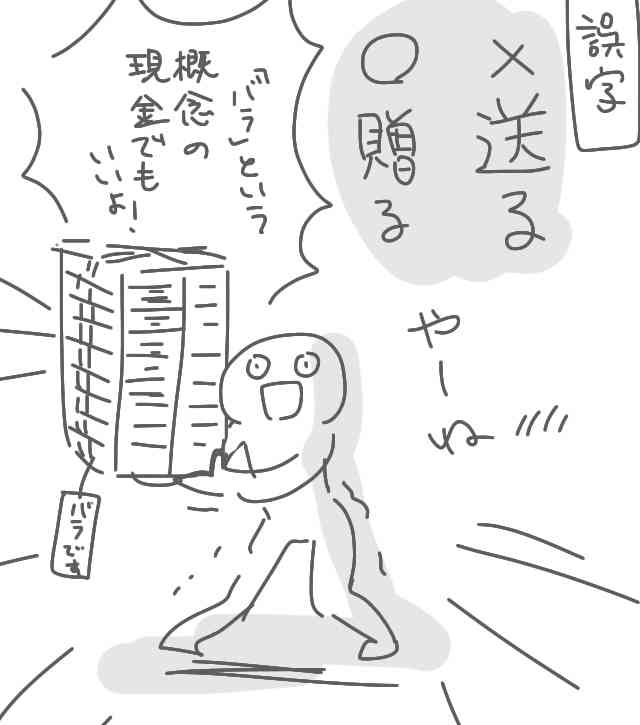 誤字
×送る
○贈る
やーね
「バラ」という
概念の
現金でも
いいよ!
バラです